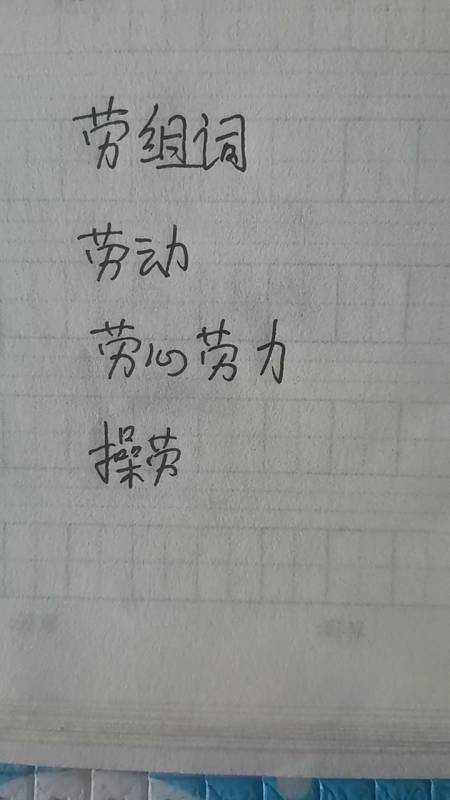 劳组词
劳动
劳心劳力
操劳